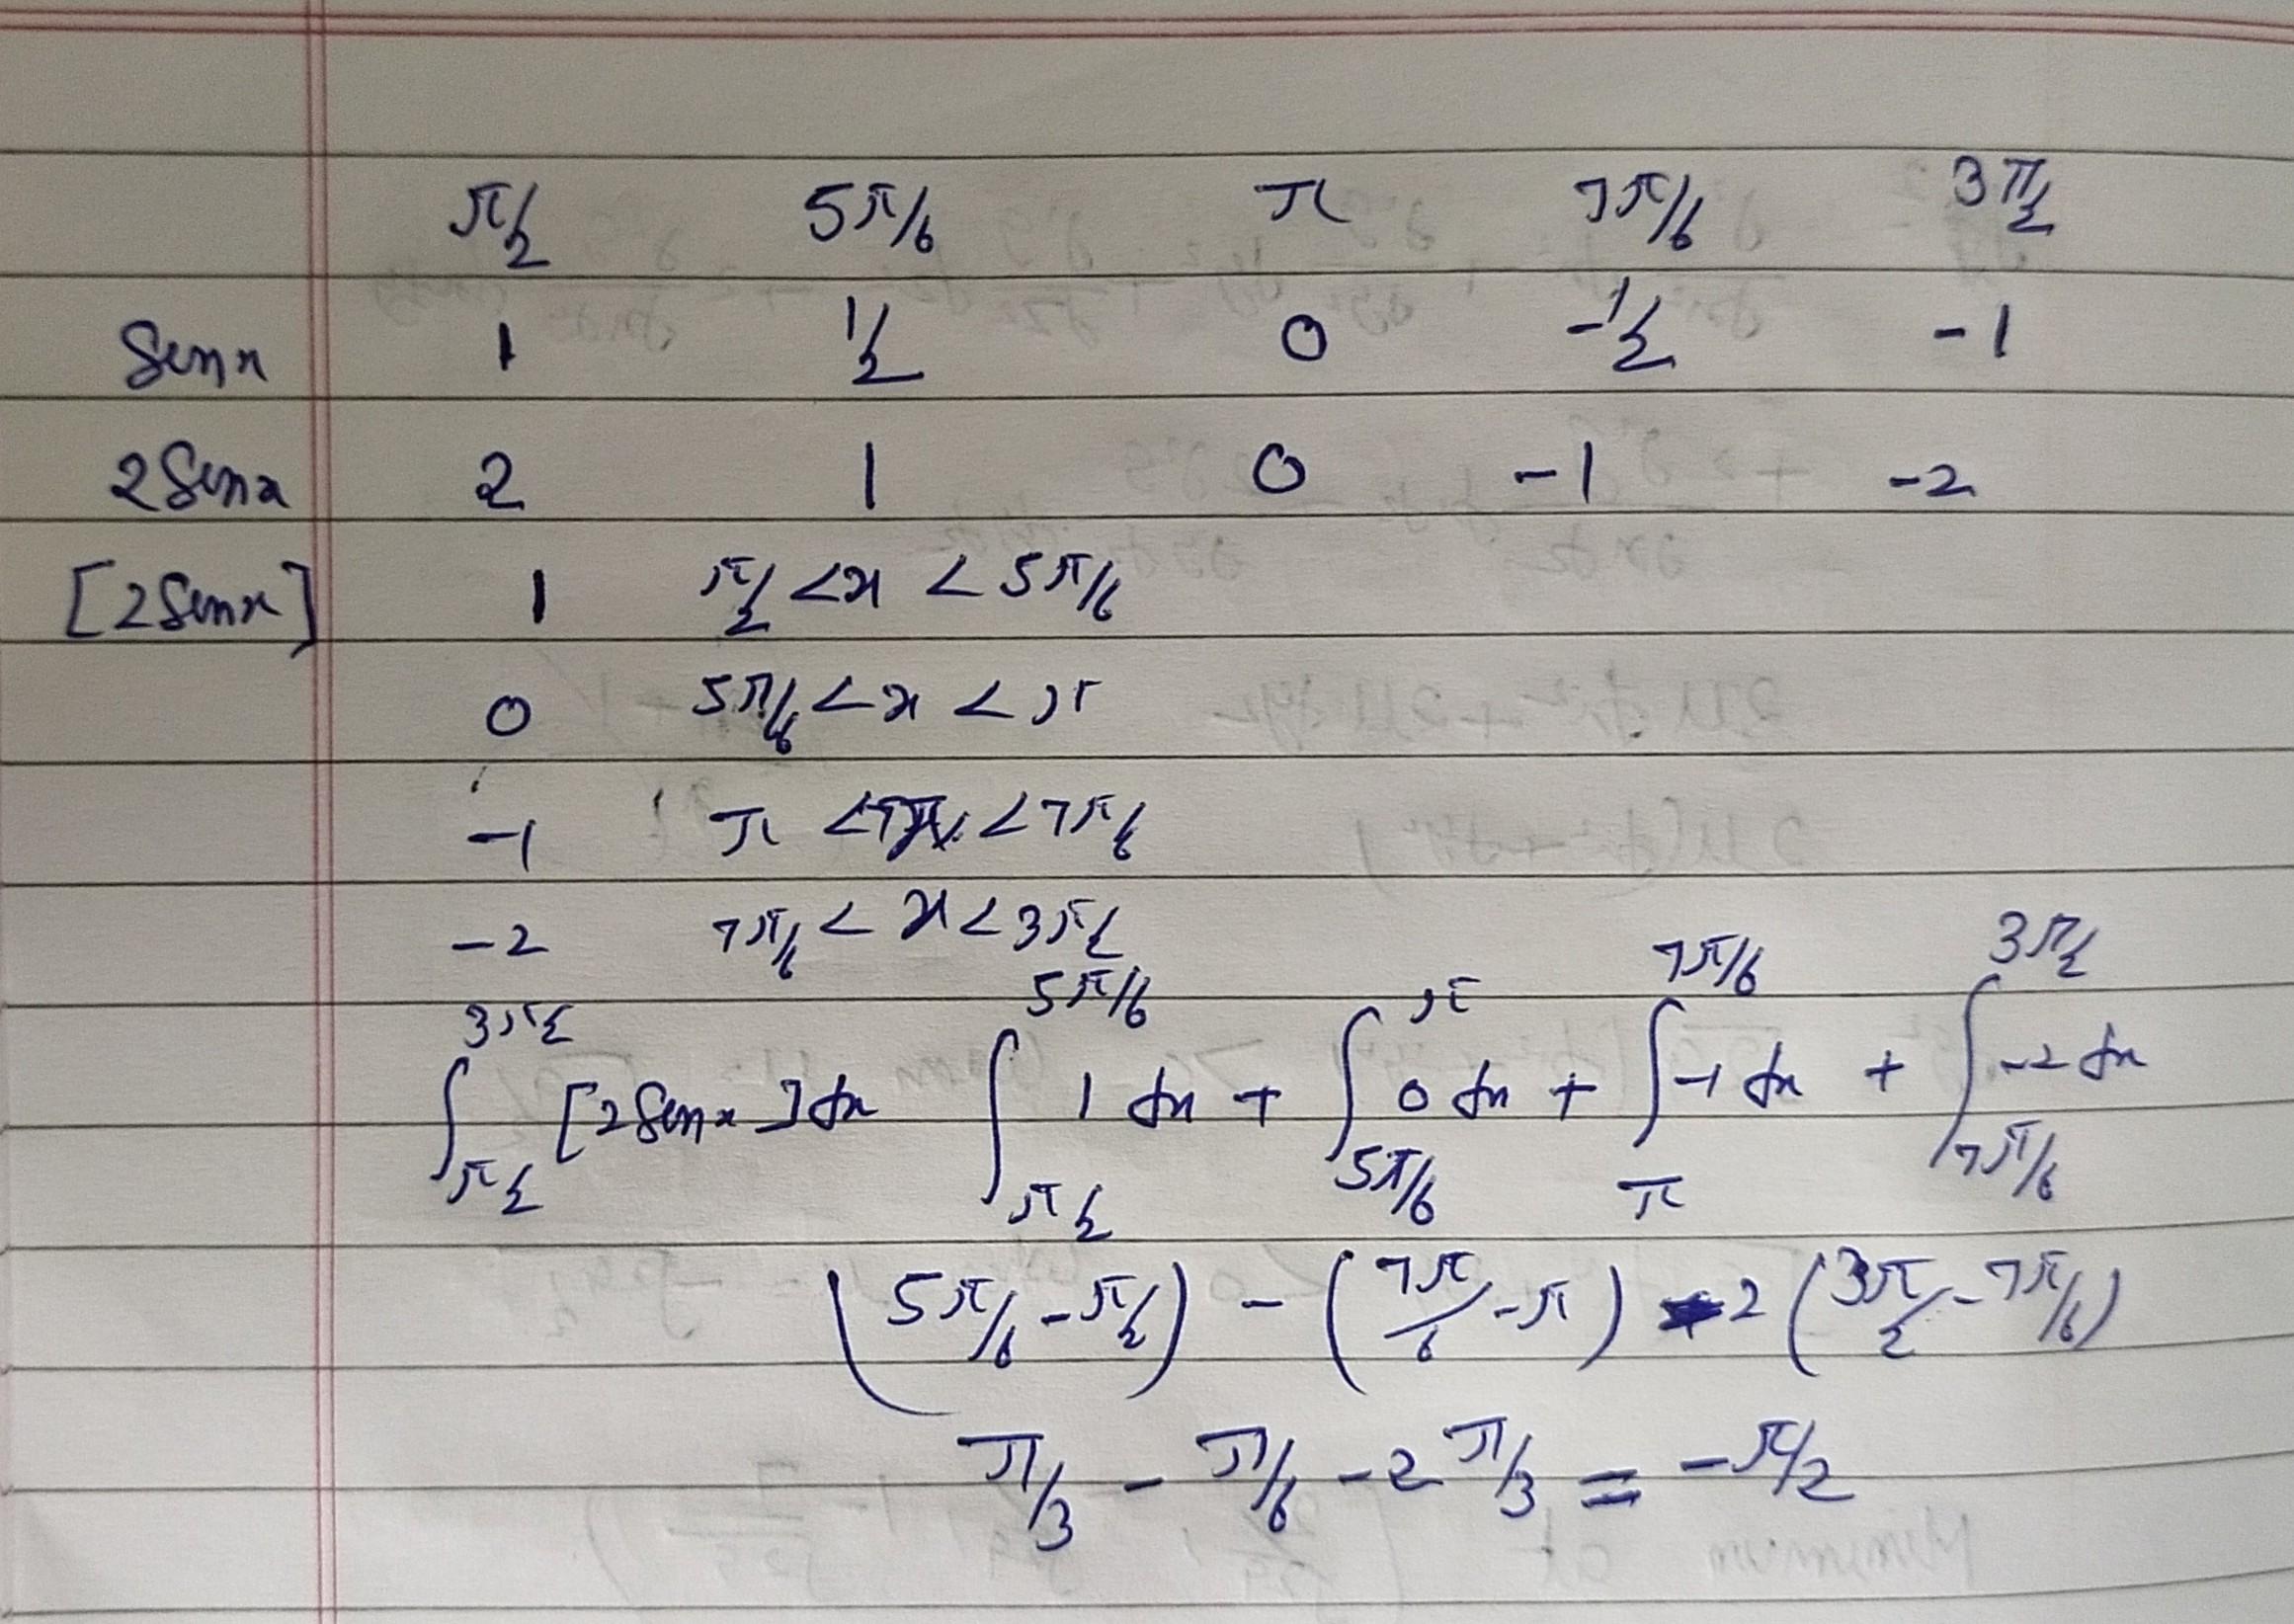 π/2 5π/6 π 7π/6 3π/2
Sinx 1 1/2 0 -1/2 -1
2Sinx 2 1 0 -1 -2
[2Sinx] 1 π/2 <x < 5π/6
0 5π/6 < x < π
-1 π < x < 7π/6
-2 7π/6 < x < 3π/2
∫_{π/2}^{3π/2} [2Sinx]dx ∫_{π/2}^{5π/6} 1 dx + ∫_{5π/6}^{π} 0 dx + ∫_{π}^{7π/6} -1 dx + ∫_{7π/6}^{3π/2} -2 dx
(5π/6 - π/2) - (7π/6 - π) - 2 (3π/2 - 7π/6)
π/3 - π/6 - 2 π/3 = - π/2